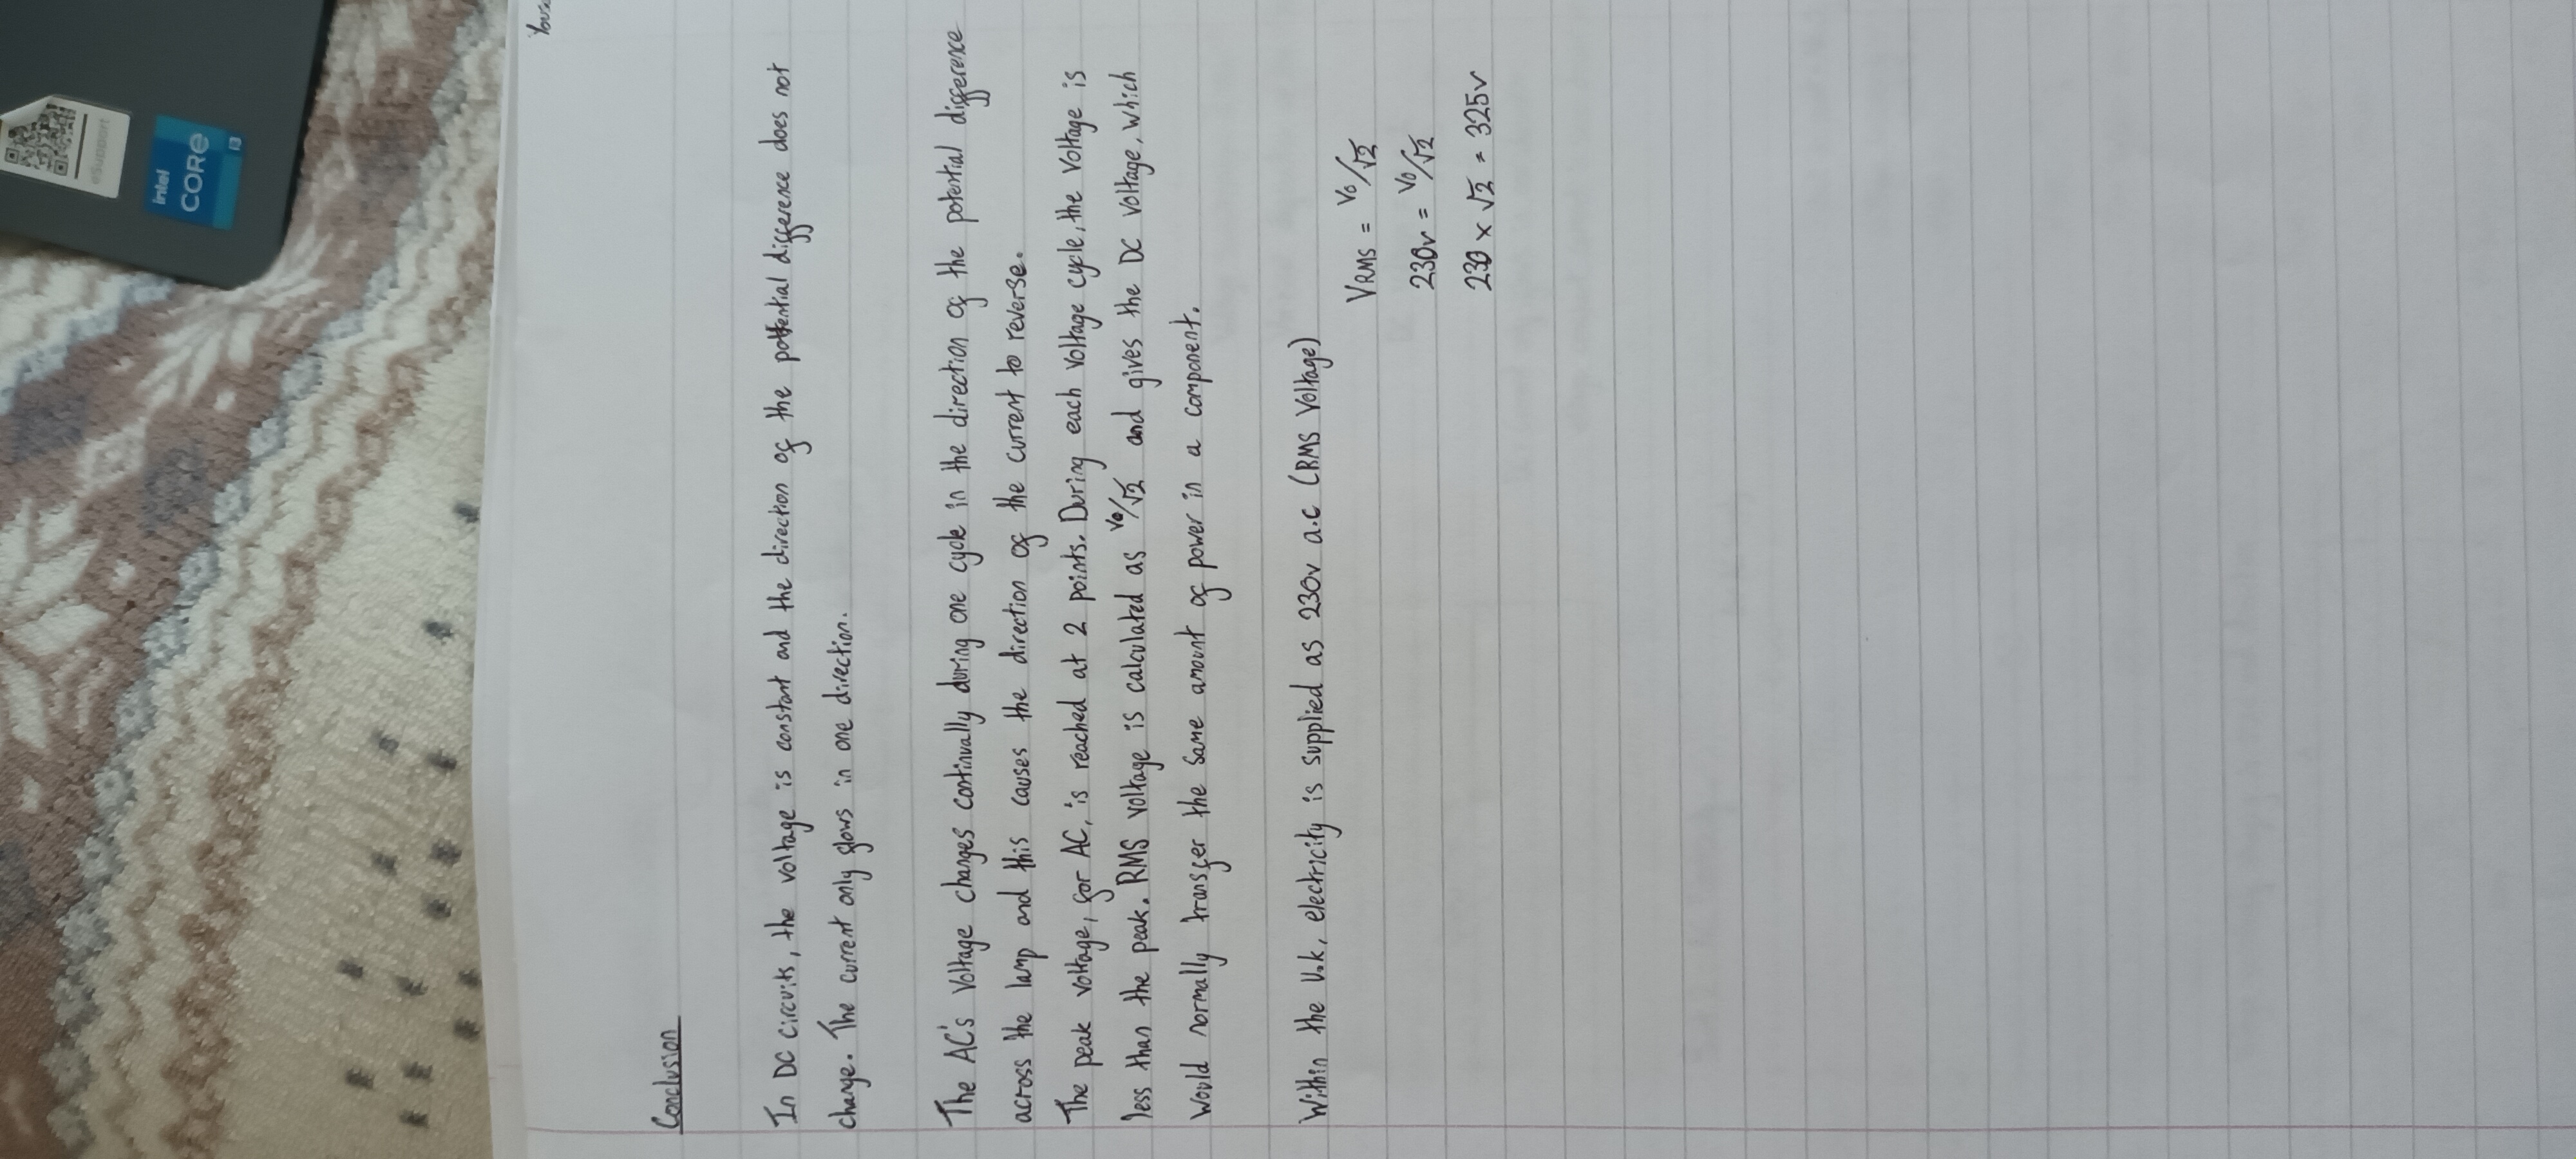 Conclusion
In DC circuits, the voltage is constant and the direction of the potential difference does not
change. The current only flows in one direction.
The AC's voltage changes continually during one cycle in the direction of the potential difference
across the lamp and this causes the direction of the current to reverse.
The peak voltage, for AC, is reached at 2 points. During each voltage cycle, the voltage is
less than the peak. RMS voltage is calculated as V0/√2 and gives the DC voltage, which
would normally transfer the same amount of power in a component.
Within the U.K, electricity is supplied as 230v a.c (RMS voltage)
VRMS = V0/√2
230v = V0/√2
230 x √2 = 325v
eSupport
intel
CORe
i3